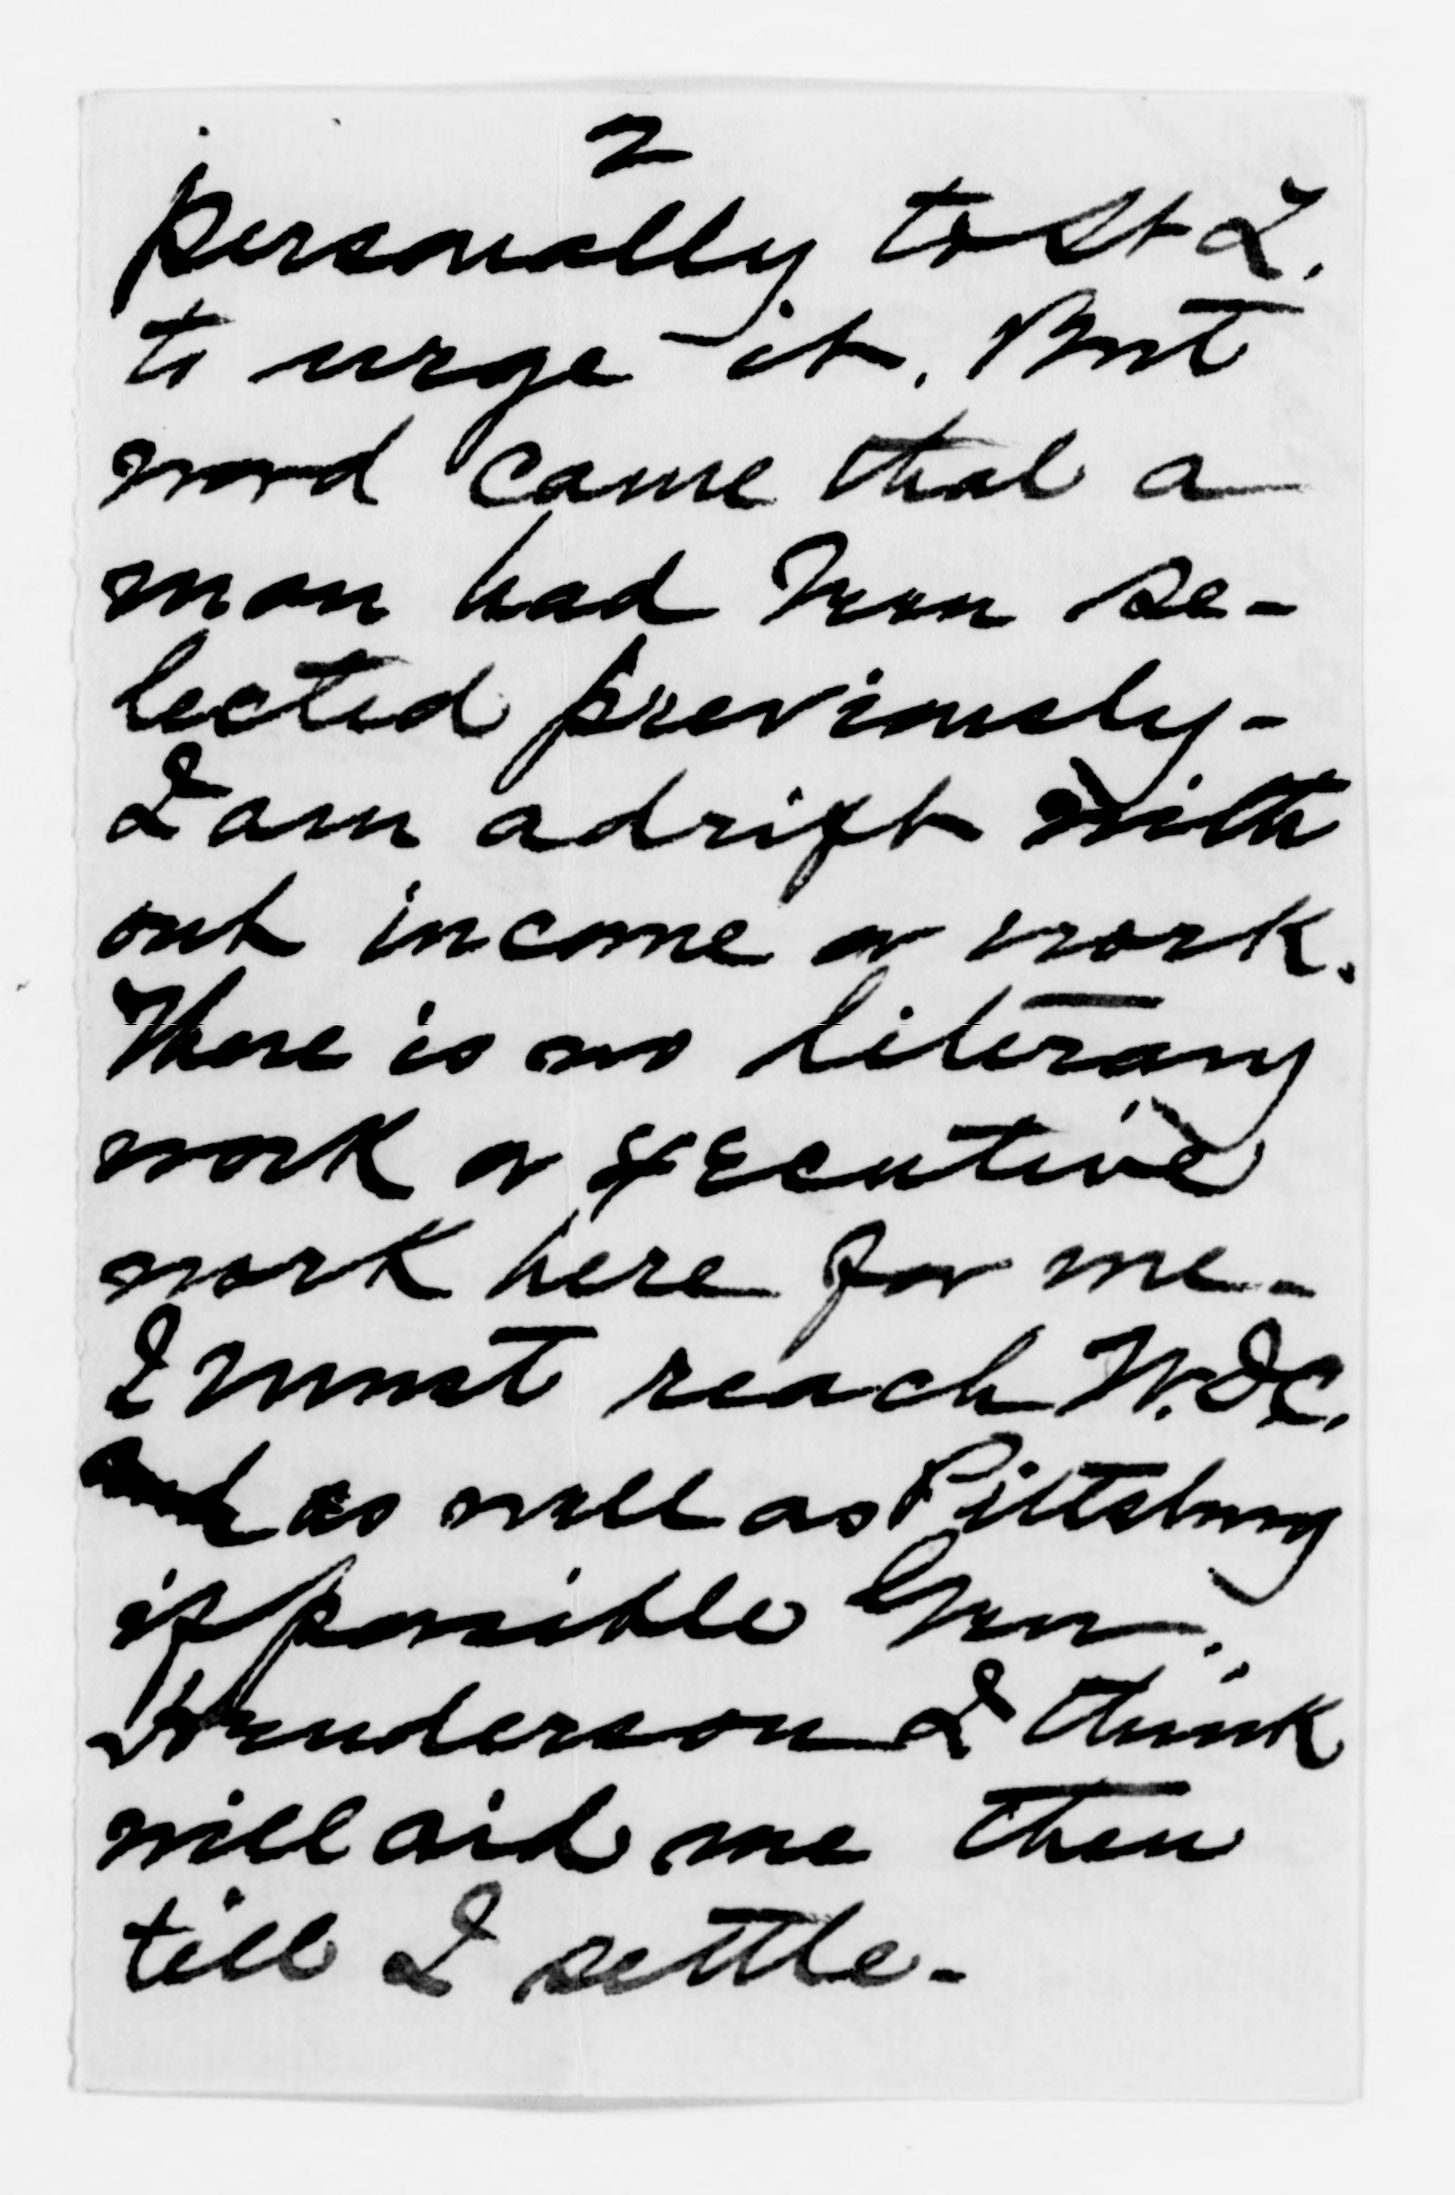 2
personally to St L.
to urge it. But
word came that a
man had been se-
lected previously-
I am adrift with
out income or work.
There is no literary
work or executive
work here for me-
I must reach W.D.C.
as well as Pittsburg
if possible Gen.
Henderson I think
will aid me then
till I settle-